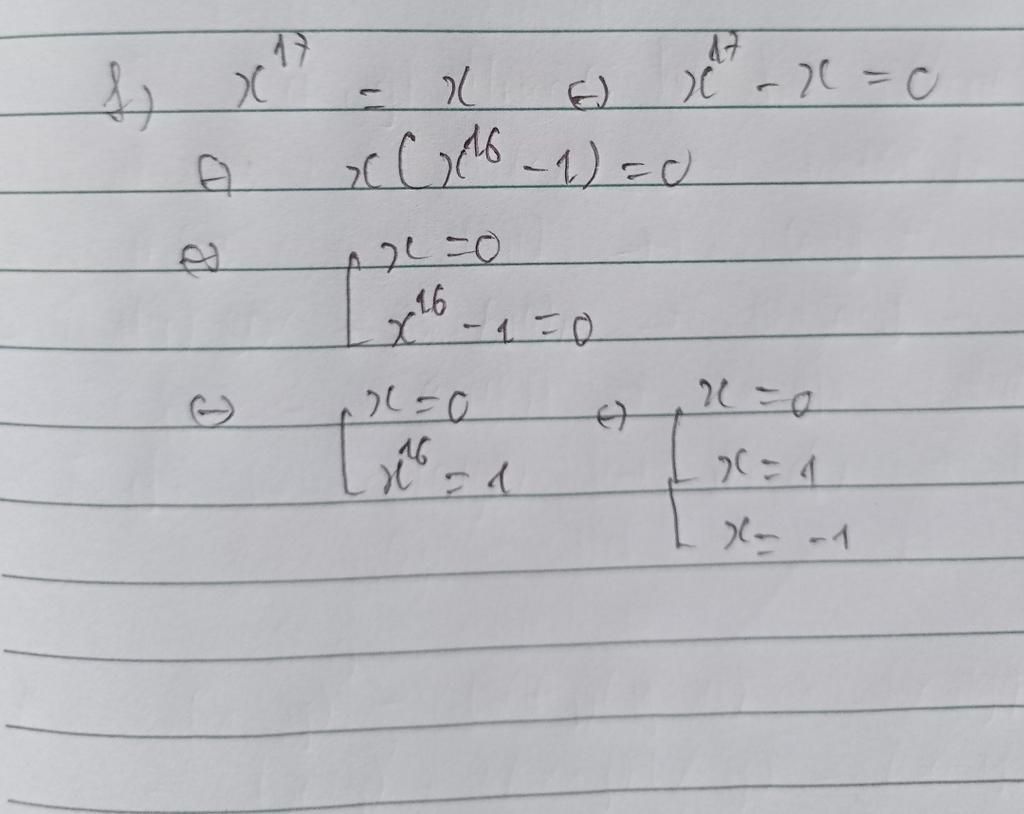 f) x^17 = x ⇔ x^17 - x = 0
⇔ x(x^16 - 1) = 0
⇔ [ x = 0
x^16 - 1 = 0
⇔ [ x = 0 ⇔ [ x = 0
x^16 = 1 [ x = 1
x = -1